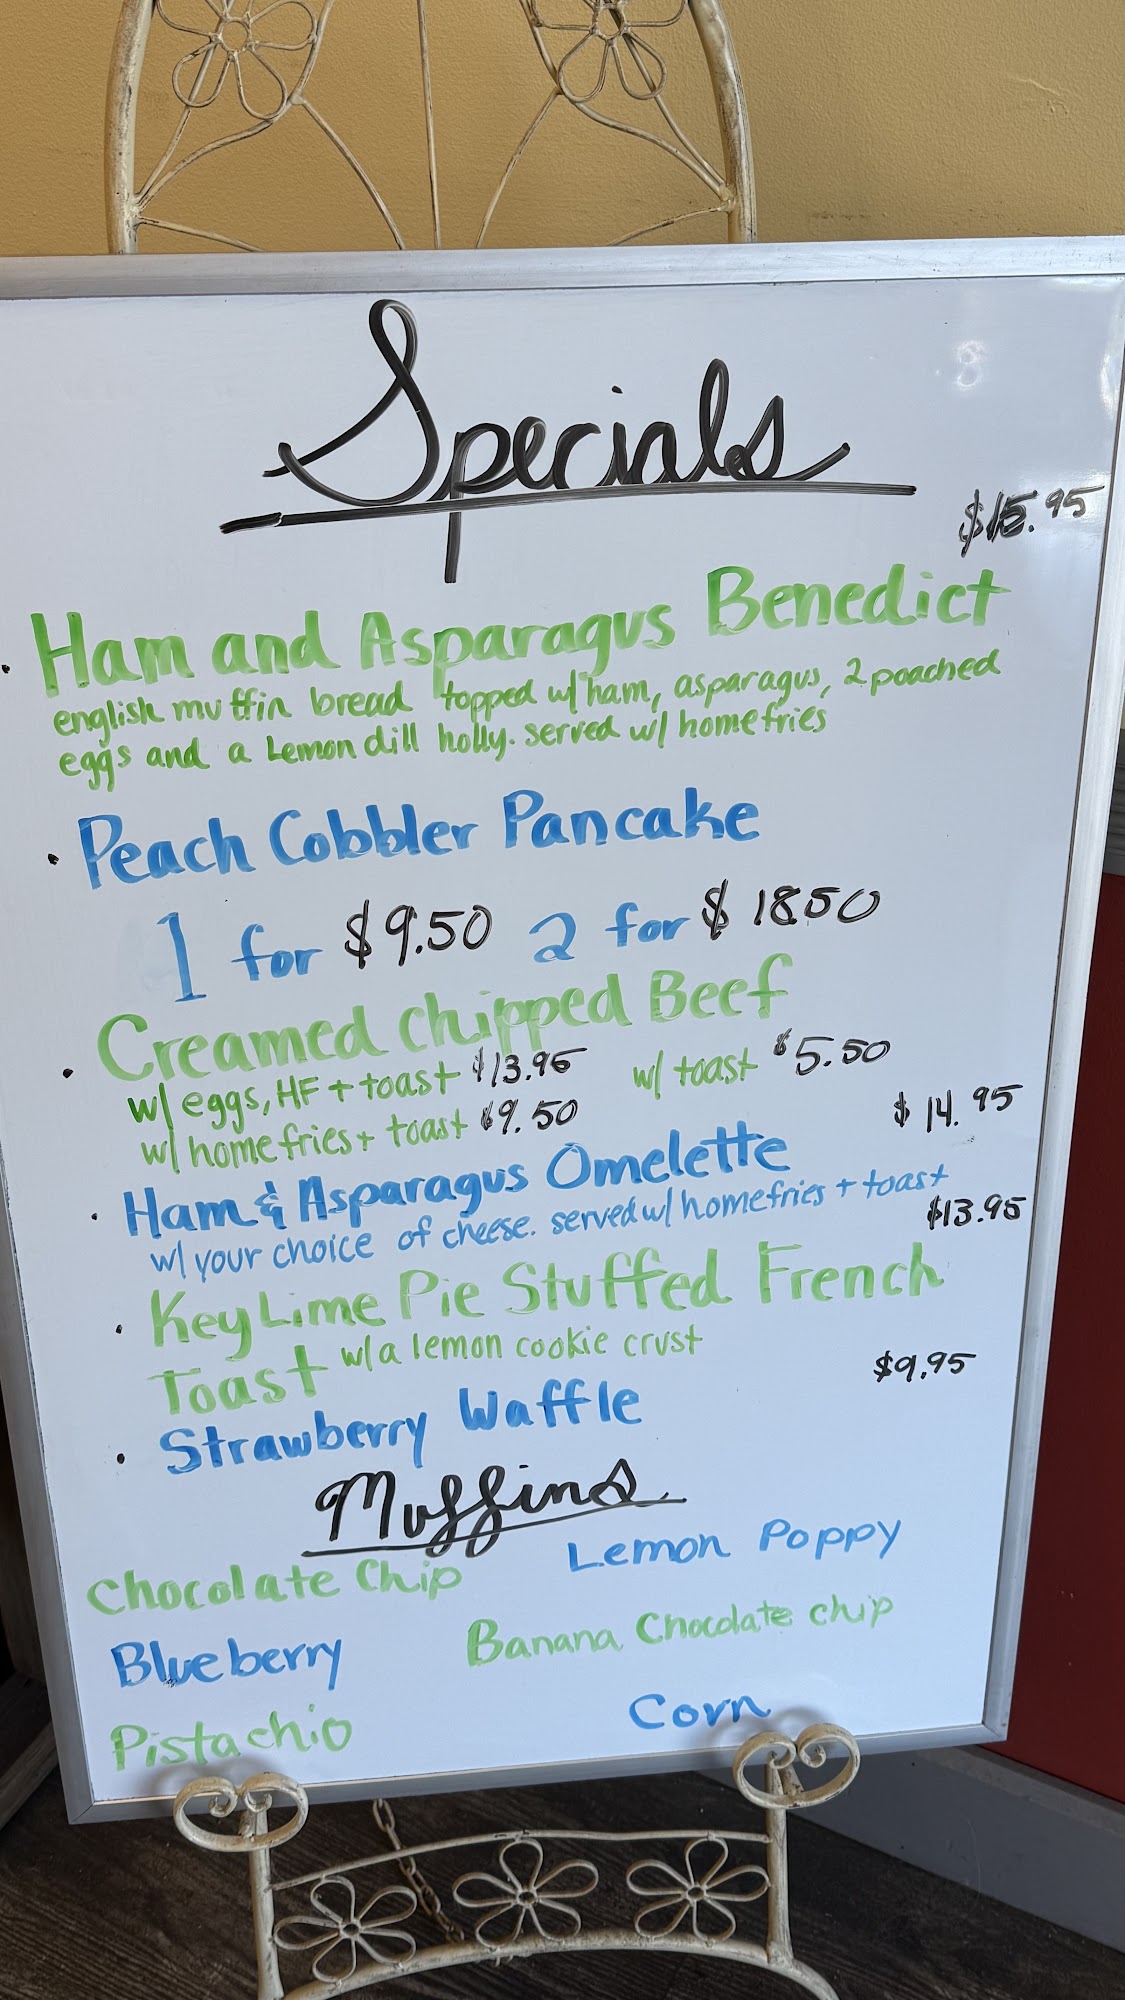 Specials
$15.95
Ham and Asparagus Benedict
english muffin bread topped w/ ham, asparagus, 2 poached
eggs and a Lemon dill holly. served w/ homefries
Peach Cobbler Pancake
1 for $9.50 2 for $1850
Creamed Chipped Beef
w/ eggs, HF + toast $13.95 w/ toast $5.50
w/ homefries + toast $9.50
$14.95
Ham & Asparagus Omelette
w/ your choice of cheese. served w/ homefries + toast
$13.95
Key Lime Pie Stuffed French
Toast w/ a lemon cookie crust
$9.95
Strawberry Waffle
Muffins
Chocolate Chip Lemon Poppy
Blueberry Banana Chocolate chip
Pistachio Corn